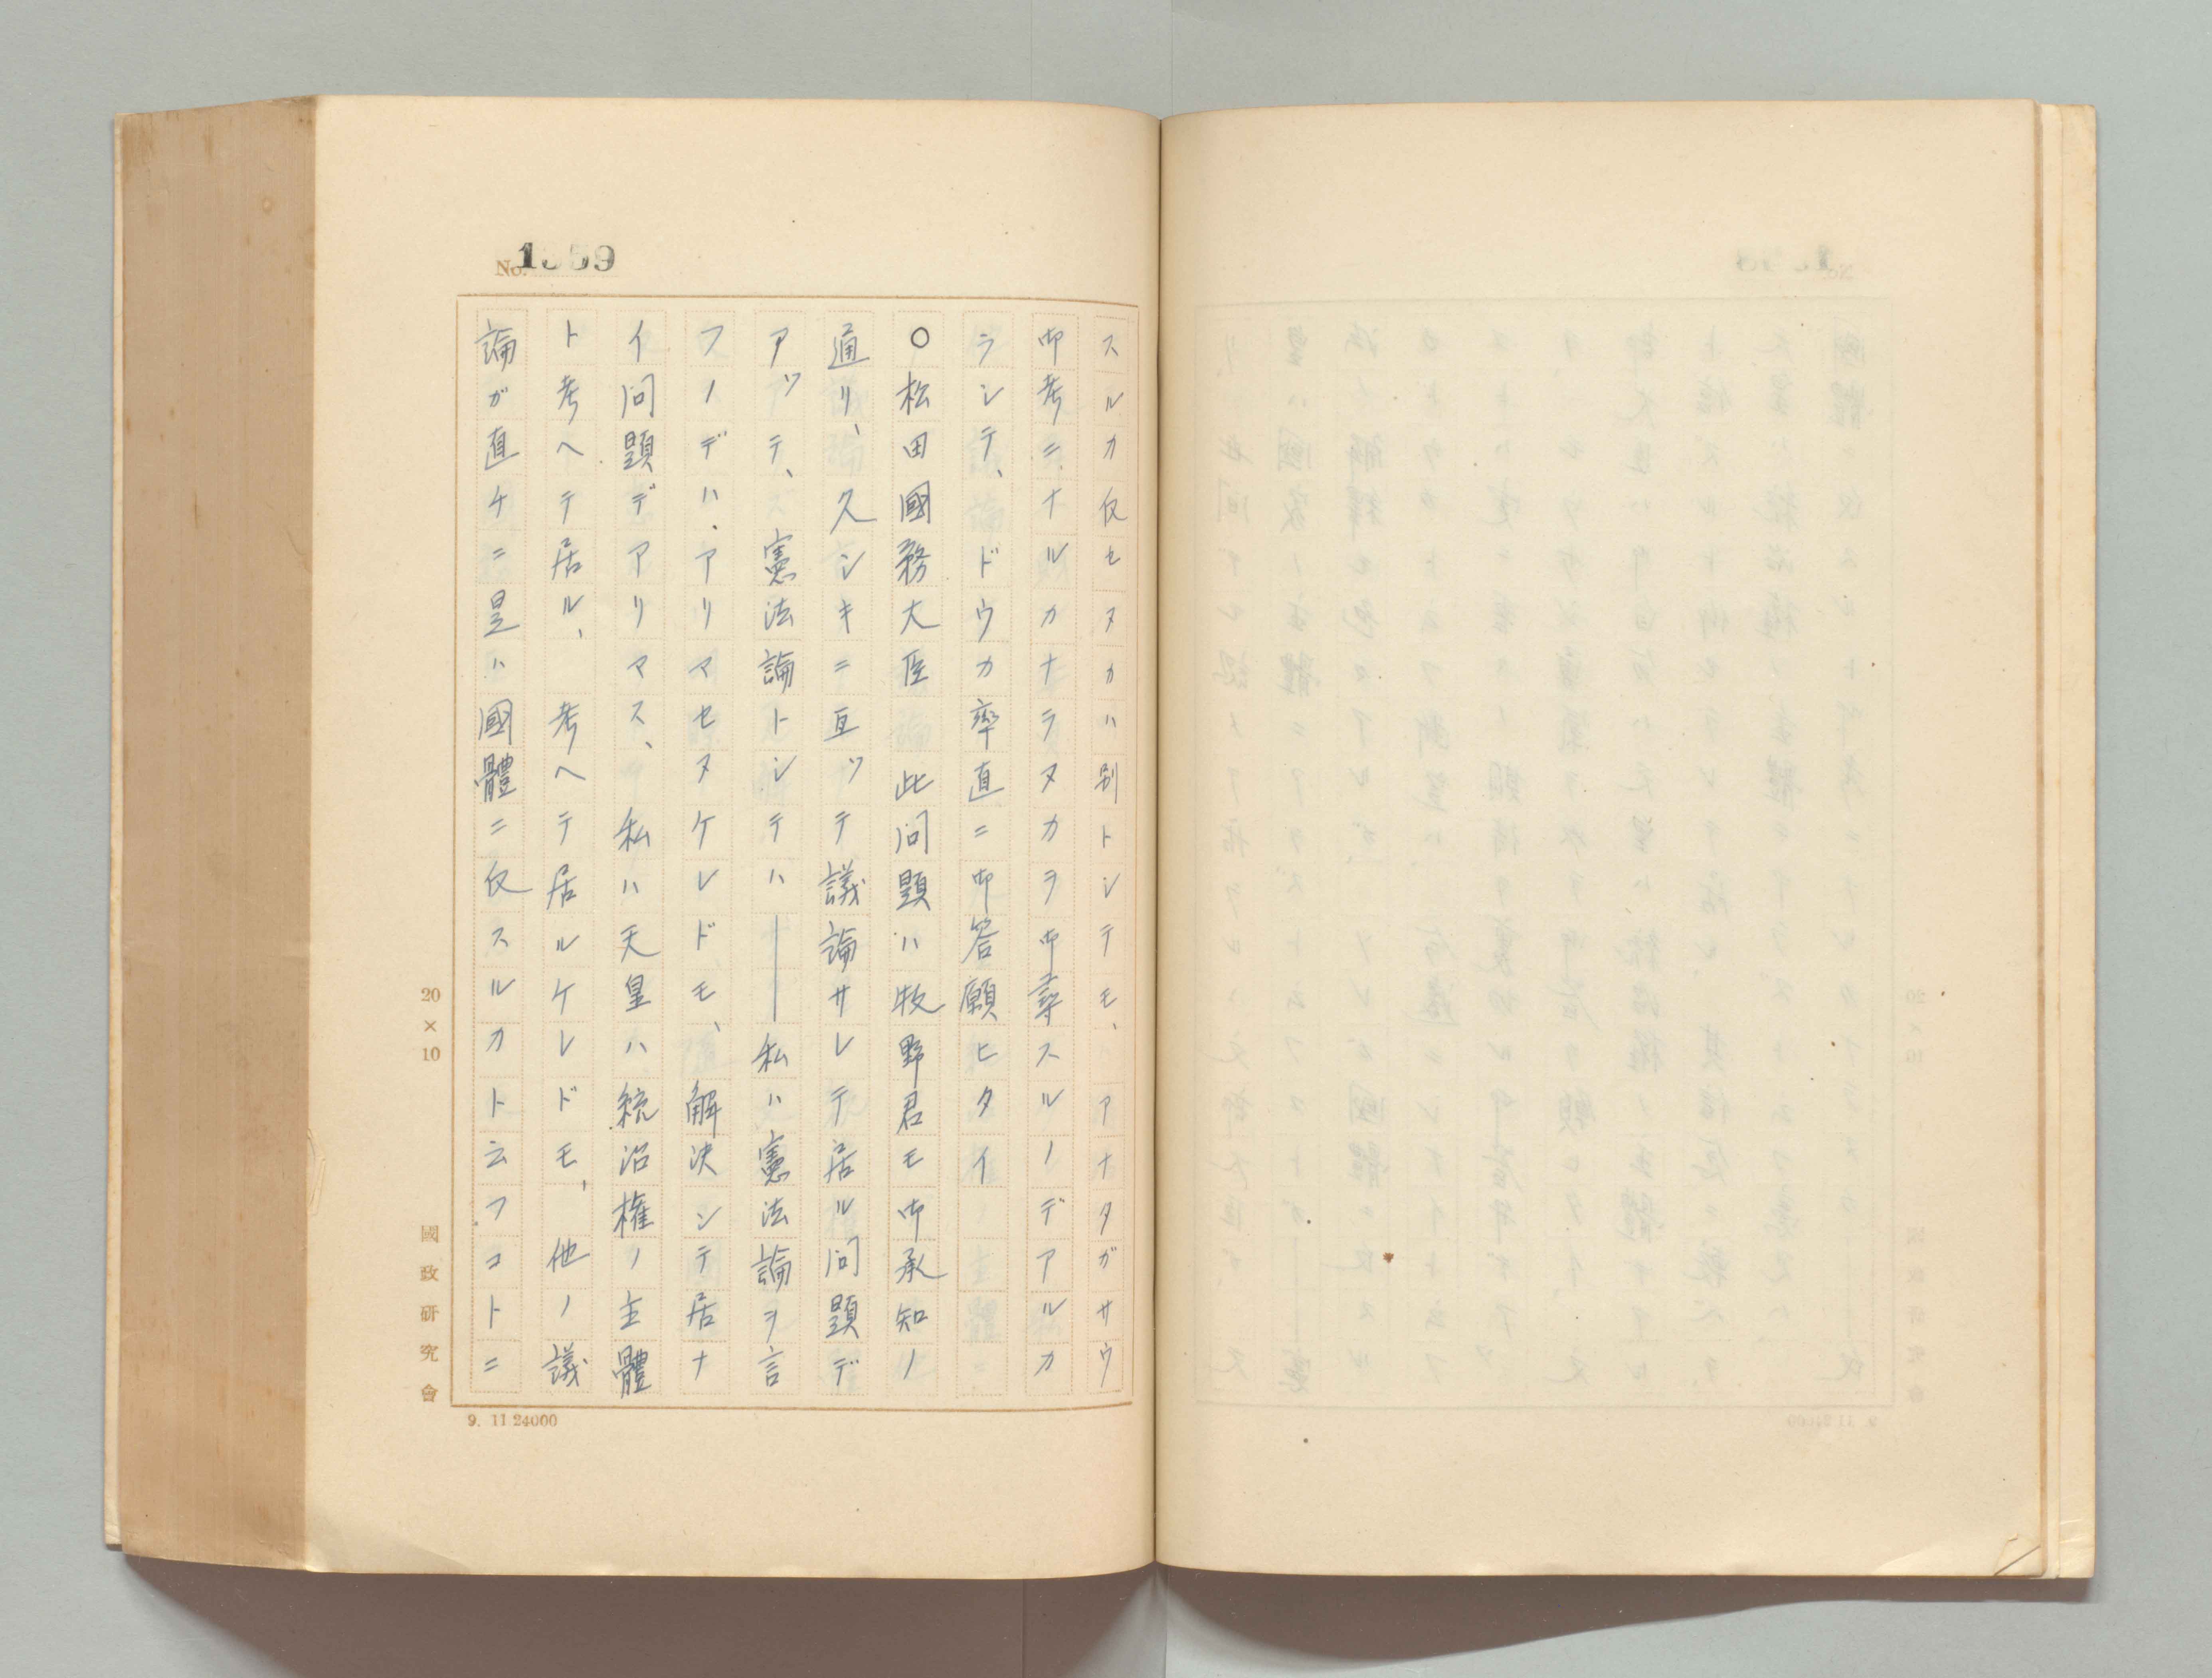 No. 1359
スルカ反セヌカハ別トシテモ、アナタガサウ
御考ニナルカナラヌカヲ御尋スルノデアルカ
ラシテ、ドウカ率直ニ御答願ヒタイ
○松田國務大臣 此問題ハ牧野君モ御承知ノ
通リ、久シキニ亙ッテ議論サレテ居ル問題デ
アッテ、憲法論トシテハ――私ハ憲法論ヲ言
フノデハアリマセヌケレドモ、解決シテ居ナ
イ問題デアリマス、私ハ天皇ハ統治権ノ主體
ト考ヘテ居ル、考ヘテ居ルケレドモ、他ノ議
論ガ直チニ是ハ國體ニ反スルカト云フコトニ
20×10
國政研究會
9. 11 24000